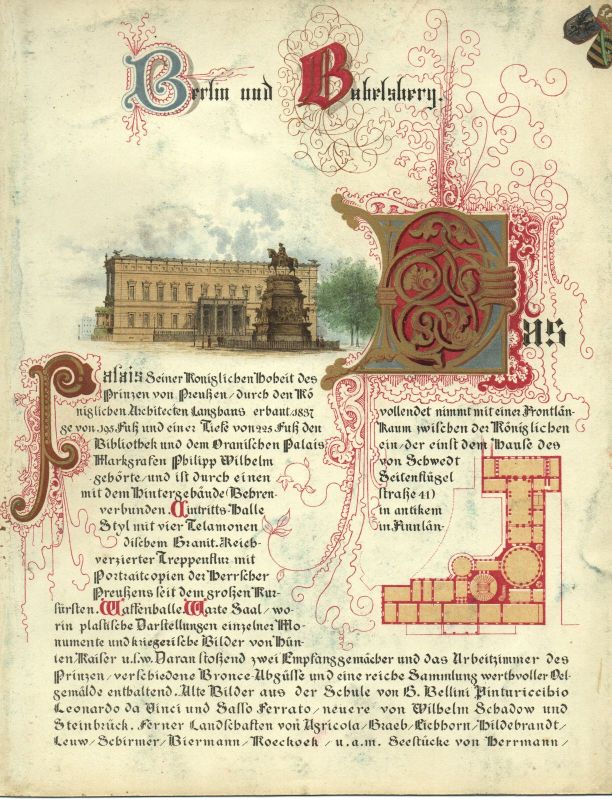 Berlin und Babelsberg.
Das
Palais Seiner Königlichen Hoheit des
Prinzen von Preußen / durch den Kö
niglichen Architecten Langhans erbaut 1837 vollendet nimmt mit einer Frontlän-
ge von 195 Fuß und einer Tiefe von 225 Fuß den Raum zwischen der Königlichen
Bibliothek und dem Oranischen Palais ein / der einst dem Hause des
Markgrafen Philipp Wilhelm von Schwedt
gehörte / und ist durch einen Seitenflügel
mit dem Hintergebäude (Behren- straße 41)
verbunden. Eintritts-Halle in antikem
Styl mit vier Telamonen in Finnlän-
dischem Granit. Reich-
verzierter Treppenflur mit
Portraitcopien der Herrscher
Preußens seit dem großen Kur-
fürsten. Waffenhalle Warte Saal / wo-
rin plastische Darstellungen einzelner Mo-
numente und kriegerische Bilder von Hün-
ten Kaiser u.s.w. Daran stoßend zwei Empfanggemächer und das Arbeitzimmer des
Prinzen / verschiedene Bronce-Abgüsse und eine reiche Sammlung werthvoller Oel-
gemälde enthaltend. Alte Bilder aus der Schule von G. Bellini Pinturiccibio
Leonardo da Vinci und Sasso Ferrato / neuere von Wilhelm Schadow und
Steinbrück. Ferner Landschaften von Agricola / Graeb / Eichhorn / Hildebrandt /
Leuw / Schirmer / Biermann / Koeckoek / u.a.m. Seestücke von Herrmann /